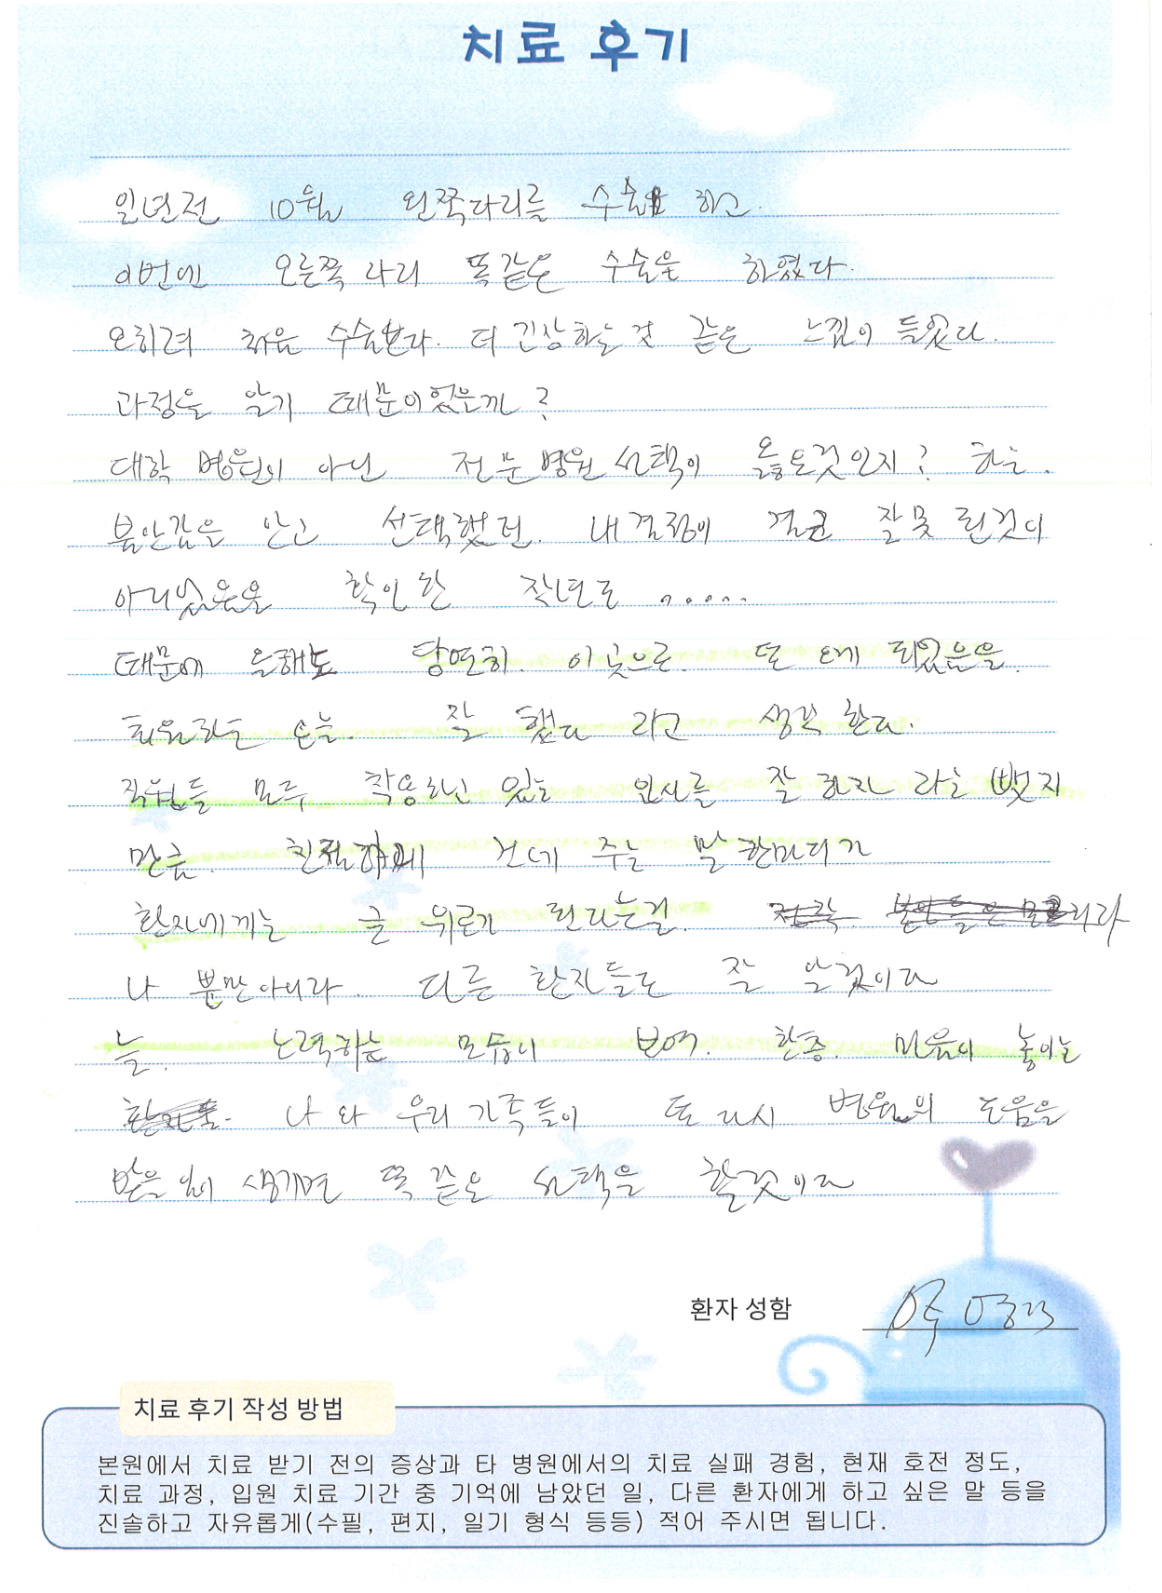 치료 후기
일년전 10월 왼쪽다리를 수술 하고.
이번에 오른쪽 다리 똑같은 수술을 하였다.
오히려 처음 수술보다. 더 긴장하는 것 같은 느낌이 들었다.
과정을 알기 때문이었을까?
대학 병원이 아닌 전문병원 선택이 옳은것인지? 하는.
불안감을 안고 선택했던. 내 결정이 결코 잘못 된것이
아니었음을 확인한 작년도 .....
때문에 올해도 당연히. 이곳으로. 또 오게 되었음을.
퇴원하는 오늘. 잘 했다 라고 생각 한다.
직원들 모두 착용하고 있는 인사를 잘 하자 라는 뺏지
만큼. 친절하게 건네 주는 말 한마디가
환자에게는 큰 위로가 된다는걸.
나 뿐만아니라. 다른 환자들도 잘 알것이다
늘. 노력하는 모습이 보여. 한층. 마음이 놓이는
나와 우리 가족들이 또 다시 병원의 도움을
받을 일이 생기면 똑 같은 선택을 할것이다
환자 성함
치료 후기 작성 방법
본원에서 치료 받기 전의 증상과 타 병원에서의 치료 실패 경험, 현재 호전 정도,
치료 과정, 입원 치료 기간 중 기억에 남았던 일, 다른 환자에게 하고 싶은 말 등을
진솔하고 자유롭게(수필, 편지, 일기 형식 등등) 적어 주시면 됩니다.